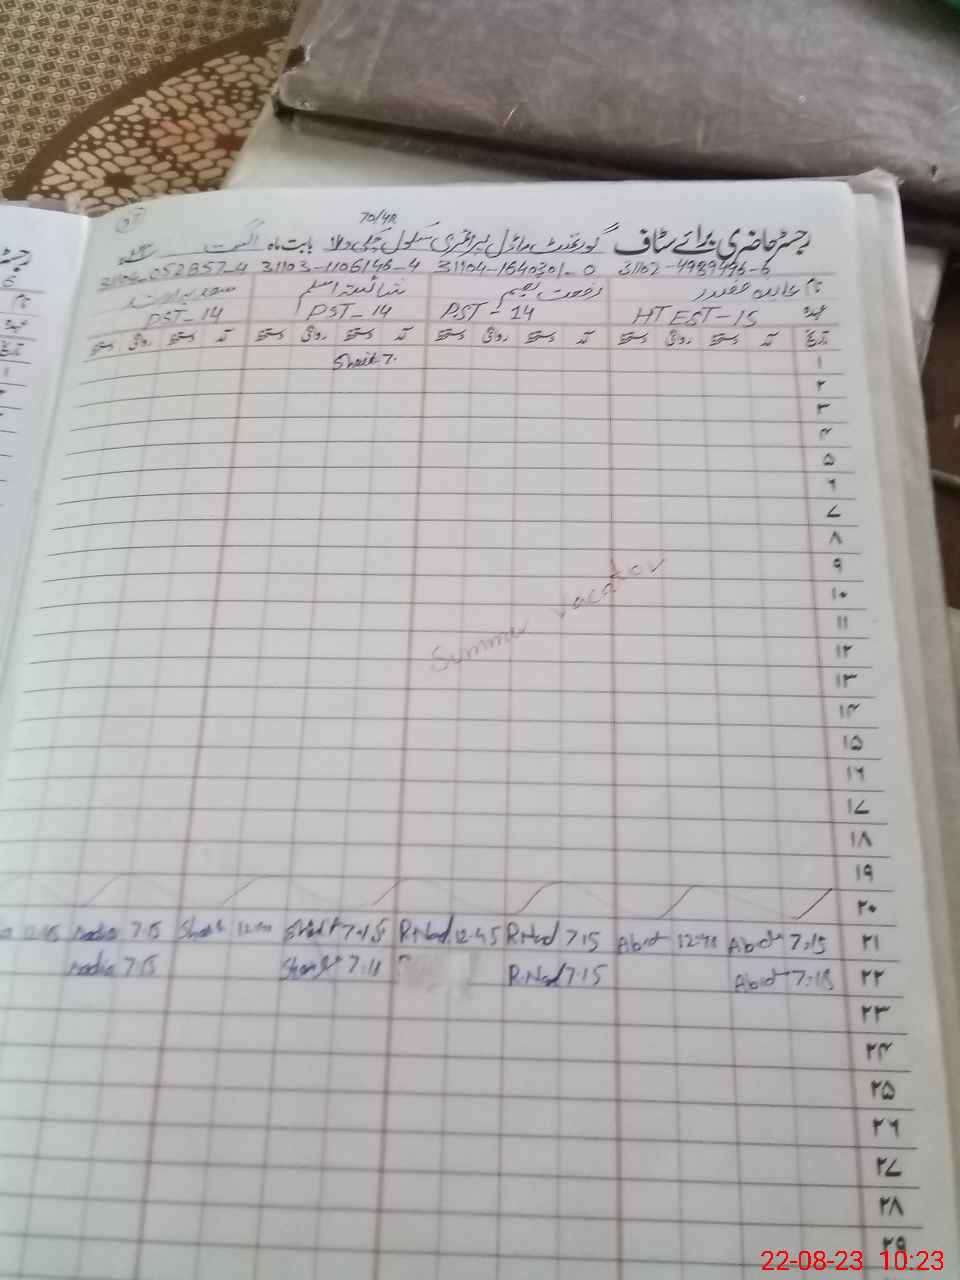 70/4R
رجسٹر حاضری برائے سٹاف گورنمنٹ ماڈل پرائمری سکول چکی والا بابت ماہ اگست
31102-4989496-6 31104-1640301-0 31103-1106146-4 31104-0528574
نام عابدہ صفدر رفعت نسیم شائستہ اسلم
عہدہ HT EST-15 PST-14 PST-14 PST-14
تاریخ آمد دستخط روانگی دستخط آمد دستخط روانگی دستخط آمد دستخط روانگی دستخط آمد دستخط روانگی دستخط
۱
۲
۳
۴
۵
۶
۷
۸
۹
۱۰
۱۱
Summer vacation
۱۲
۱۳
۱۴
۱۵
۱۶
۱۷
۱۸
۱۹
۲۰
۲۱ Abid 7:15 Abid R.Nad 7.15 R.Nad 12.45 7:15 Sadia 7.15
۲۲ Abid 7:15 R.Nad 7.15 7:11 Sadia 7.15
۲۳
۲۴
۲۵
۲۶
۲۷
۲۸
۲۹
22-08-23 10:23